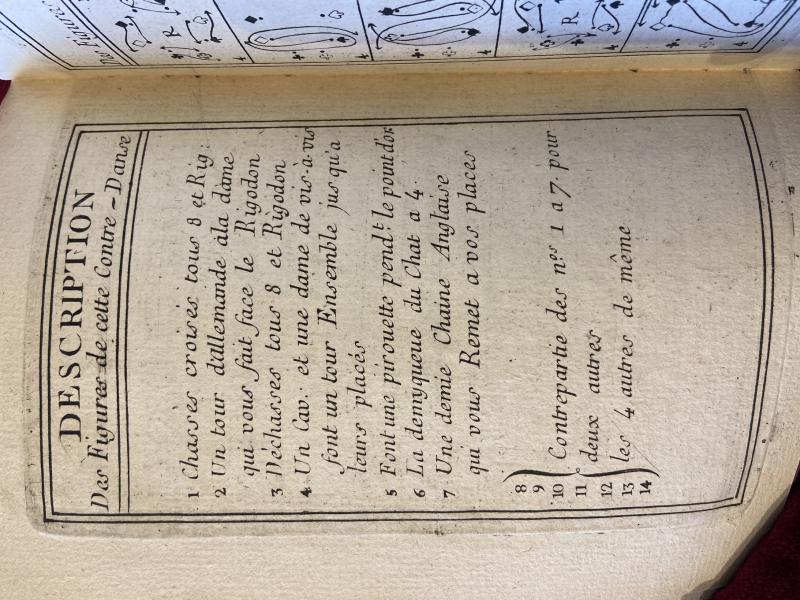 DESCRIPTION
Des Figures de cette Contre-Danse
1 Chassés croisés tous 8 et Rig:
2 Un tour d'allemande àla dame
qui vous fait face le Rigodon
3 Déchassés tous 8 et Rigodon
4 Un Cav: et une dame de vis-a-vis
font un tour Ensemble jus qu'a
leurs placés
5 Font une pirouette pend.t le point d'or
6 La demyqueue du Chat a 4.
7 Une demie Chaine Anglaise
qui vous Remet a vos places
8
9
10 Contrepartie des nos 1 a 7. pour
11 deux autres
12
13 les 4 autres de même
14